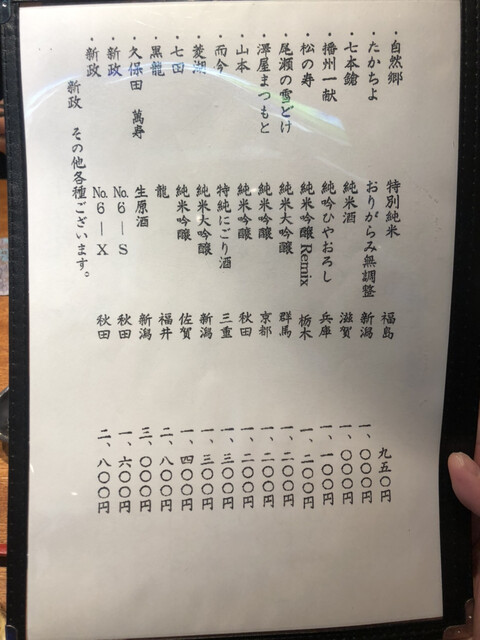 ・自然郷 特別純米 福島 九五〇円
・たかちよ おりがらみ無調整 新潟 一、〇〇〇円
・七本鎗 純米酒 滋賀 一、〇〇〇円
・播州一献 純吟ひやおろし 兵庫 一、一〇〇円
・松の寿 純米吟醸 Remix 栃木 一、二〇〇円
・尾瀬の雪どけ 純米大吟醸 群馬 一、二〇〇円
・澤屋まつもと 純米吟醸 京都 一、二〇〇円
・山本 純米吟醸 秋田 一、二〇〇円
・而今 特純にごり酒 三重 一、三〇〇円
・菱湖 純米大吟醸 新潟 一、三〇〇円
・七田 純米吟醸 佐賀 一、四〇〇円
・黒龍 龍 福井 二、八〇〇円
・久保田 萬寿 生原酒 新潟 三、〇〇〇円
・新政 No.6―S 秋田 一、六〇〇円
・新政 No.6―X 秋田 二、八〇〇円
新政 その他各種ございます。